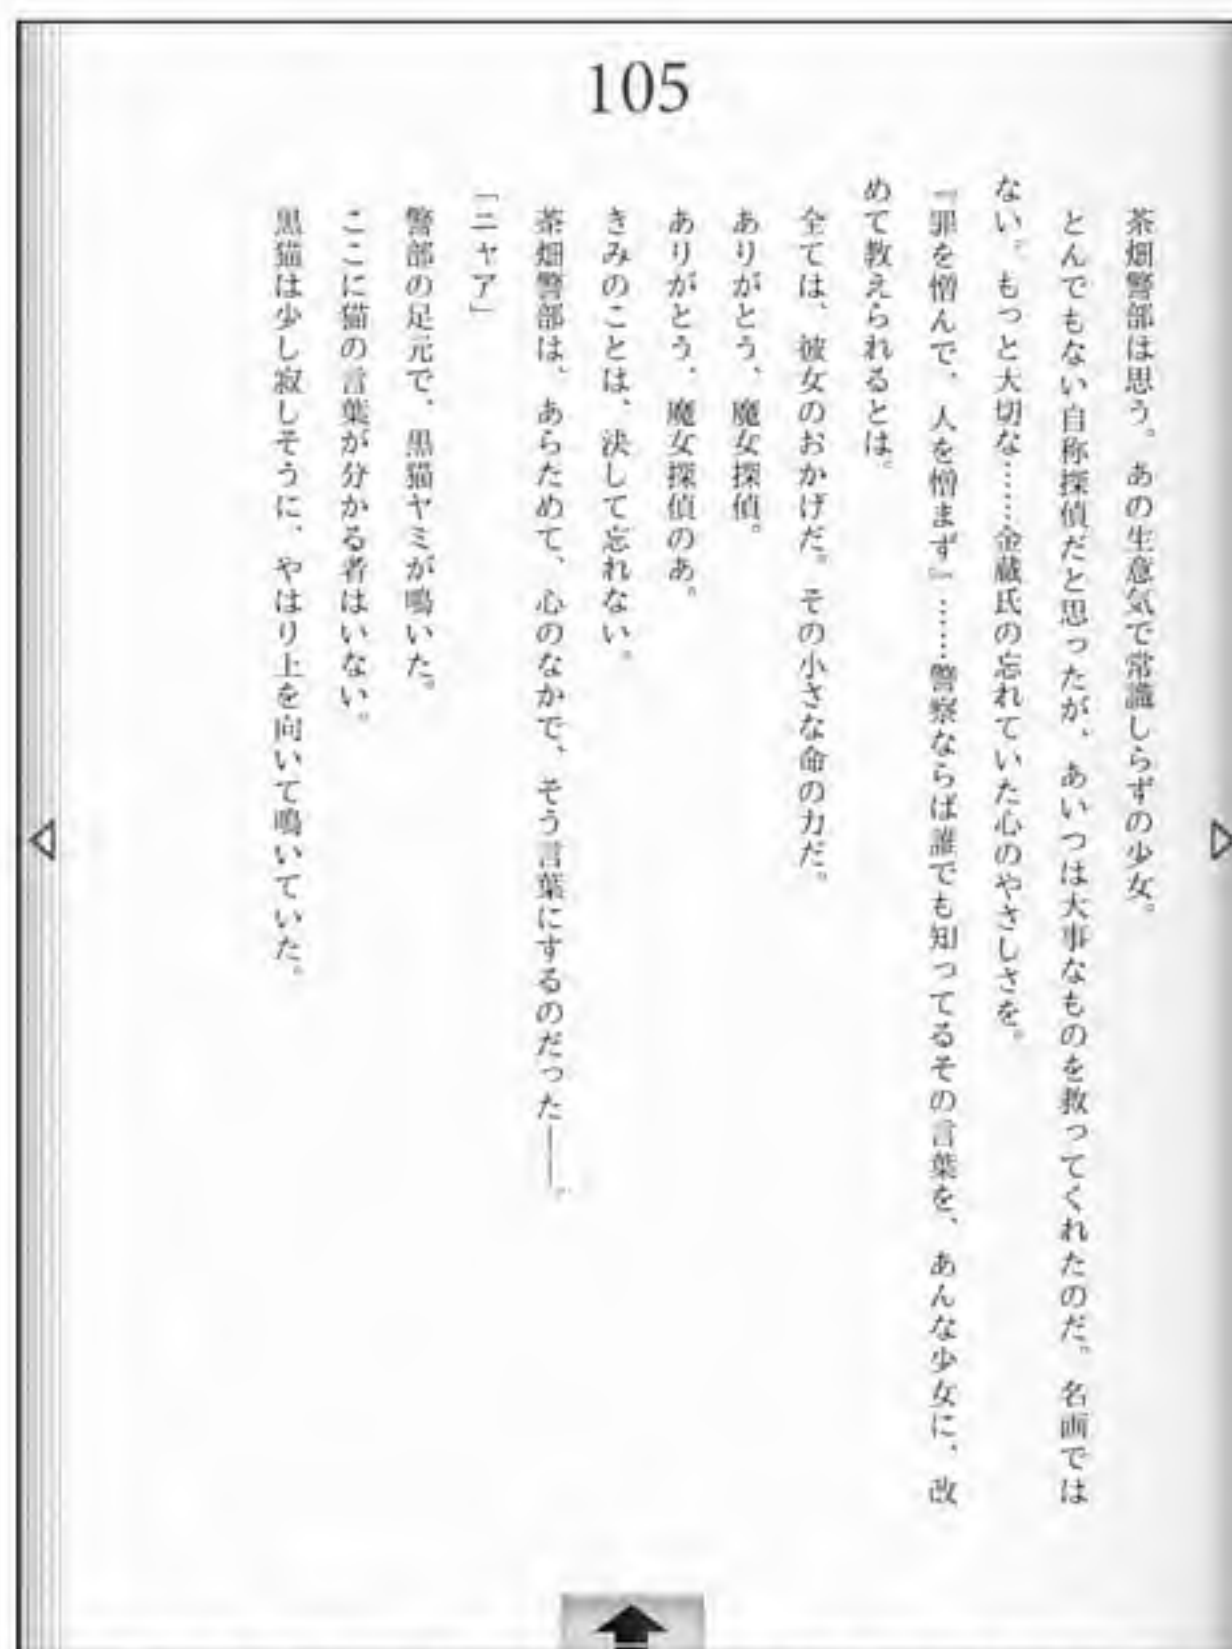 105
茶畑警部は思う。あの生意気で常識しらずの少女。
とんでもない自称探偵だと思ったが、あいつは大事なものを救ってくれたのだ。名画では
ない。もっと大切な……金蔵氏の忘れていた心のやさしさを。
『罪を憎んで、人を憎まず』……警察ならば誰でも知ってるその言葉を、あんな少女に、改
めて教えられるとは。
全ては、彼女のおかげだ。その小さな命の力だ。
ありがとう、魔女探偵。
ありがとう、魔女探偵のあ。
きみのことは、決して忘れない。
茶畑警部は、あらためて、心のなかで、そう言葉にするのだった――。
「ニャア」
警部の足元で、黒猫ヤミが鳴いた。
ここに猫の言葉が分かる者はいない。
黒猫は少し寂しそうに、やはり上を向いて鳴いていた。